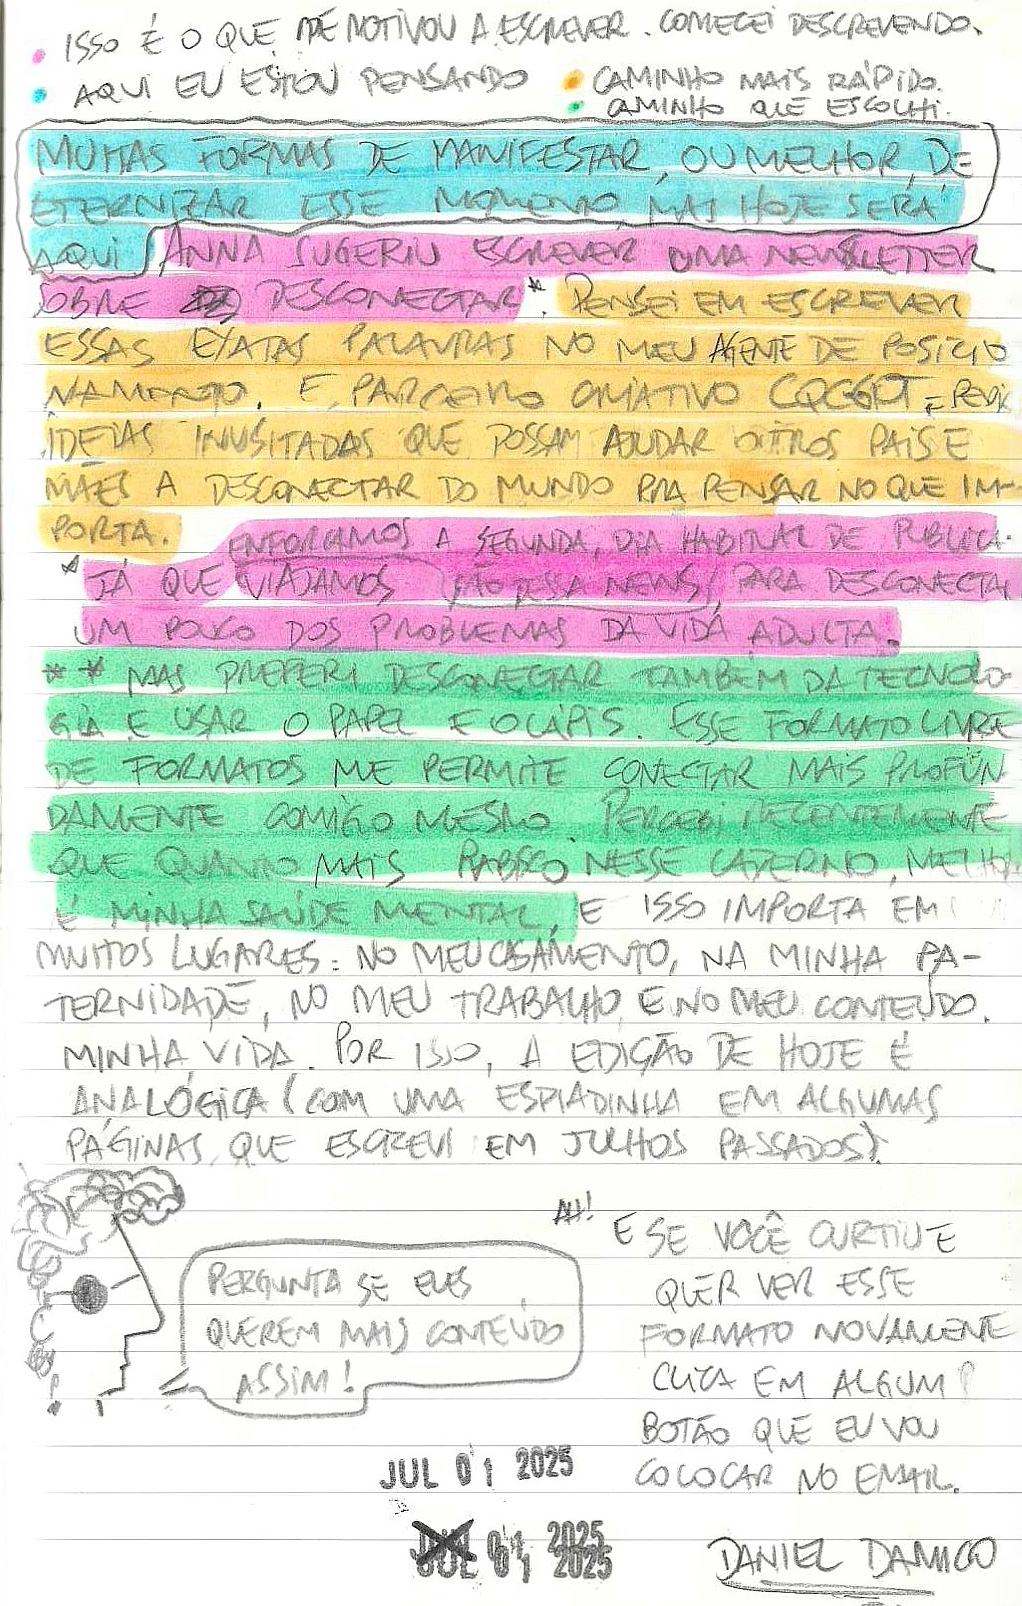 • ISSO É O QUE ME MOTIVOU A ESCREVER. COMECEI DESCREVENDO.
• AQUI EU ESTOU PENSANDO
• CAMINHO MAIS RÁPIDO.
• CAMINHO QUE ESCOLHI.
MUITAS FORMAS DE MANIFESTAR, OU MELHOR, DE
ETERNIZAR ESSE MOMENTO, MAS HOJE SERÁ
AQUI ANNA SUGERIU ESCREVER UMA NEWSLETTER
SOBRE DESCONECTAR*. PENSEI EM ESCREVER
ESSAS EXATAS PALAVRAS NO MEU AGENTE DE POSICIO
NAMENTO. E PARCEIRO CRIATIVO E PEDIR
IDEIAS INUSITADAS QUE POSSAM AJUDAR OUTROS PAIS E
MÃES A DESCONECTAR DO MUNDO PRA PENSAR NO QUE IM-
PORTA. ENFORCAMOS A SEGUNDA, DIA HABITUAL DE PUBLICA-
* JÁ QUE VIAJAMOS ÇÃO DESSA NEWS, PARA DESCONECTAR
UM POUCO DOS PROBLEMAS DA VIDA ADULTA.
** MAS PREFERI DESCONECTAR TAMBÉM DA TECNOLO-
GIA E USAR O PAPEL E O LÁPIS. ESSE FORMATO LIVRE
DE FORMATOS ME PERMITE CONECTAR MAIS PROFUN
DAMENTE COMIGO MESMO. PERCEBI RECENTEMENTE
QUE QUANTO MAIS RABISCO NESSE CADERNO, MELHOR
É MINHA SAÚDE MENTAL, E ISSO IMPORTA EM
MUITOS LUGARES: NO MEU CASAMENTO, NA MINHA PA-
TERNIDADE, NO MEU TRABALHO, E NO MEU CONTEÚDO.
MINHA VIDA. POR ISSO, A EDIÇÃO DE HOJE É
ANALÓGICA (COM UMA ESPIADINHA EM ALGUMAS
PÁGINAS QUE ESCREVI EM JULHOS PASSADOS).
PERGUNTA SE ELES
QUEREM MAIS CONTEÚDO
ASSIM!
AH!
E SE VOCÊ CURTIU E
QUER VER ESSE
FORMATO NOVAMENTE
CLICA EM ALGUM
BOTÃO QUE EU VOU
COLOCAR NO EMAIL.
JUL 01 2025
01 2025
JUL 01 2025
DANIEL DAMICO